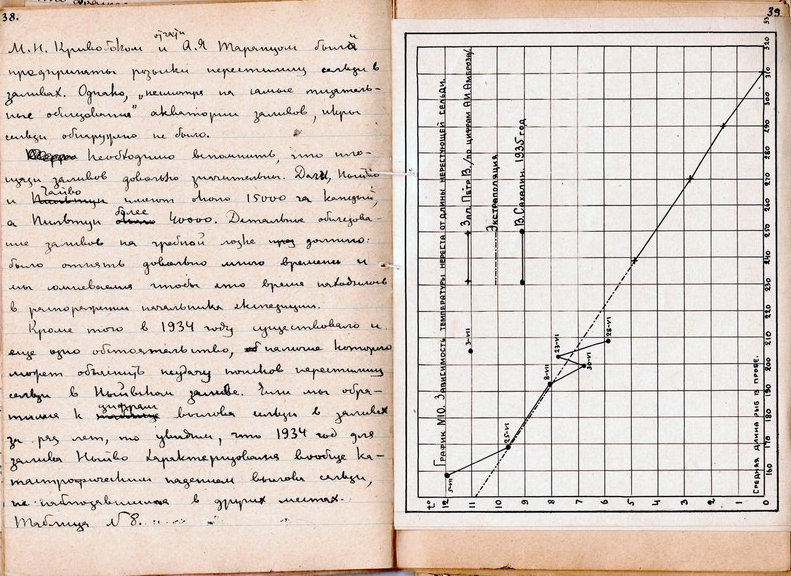 38.
М.Н. Кривобоком и отчасти А.Я Таранцом были
предприняты розыски нерестилищ сельди в
заливах. Однако, "несмотря на самые тщатель-
ные обследования" акватории заливов, икры
сельди обнаружено не было.
Необходимо вспомнить, что пло-
щади заливов довольно значительны. Даги, Ныйво
и Чайво имеют около 15000 га каждый,
а Пильтун более 40000. Детальное обследова-
ние заливов на гребной лодке должно
было отнять довольно много времени и
мы сомневаемся чтобы это время находилось
в распоряжении начальника экспедиции.
Кроме того в 1934 году существовало и
еще одно обстоятельство, наличие которого
может объяснить неудачу поисков нерестилищ
сельди в Ныйвском заливе. Если мы обра-
тимся к цифрам вылова сельди в заливах
за ряд лет, то увидим, что 1934 год для
залива Ныйво характеризовался вообще ка-
тастрофическим падением вылова сельди,
не наблюдавшимся в других местах.
Таблица № 8.
39
График №10. Зависимость температуры нереста от длины нерестующей сельди.
Зал. Петр В. /по цифрам А.И. Амброза/
Экстраполяция
В. Сахалин. 1935 год
t°
12
11
10
9
8
7
6
5
4
3
2
1
0
3-VII
25-VI
8-VII
30-VI
23-VI
28-VI
Средняя длина рыб в пробе.
160
170
180
190
200
210
220
230
240
250
260
270
280
290
300
310
320